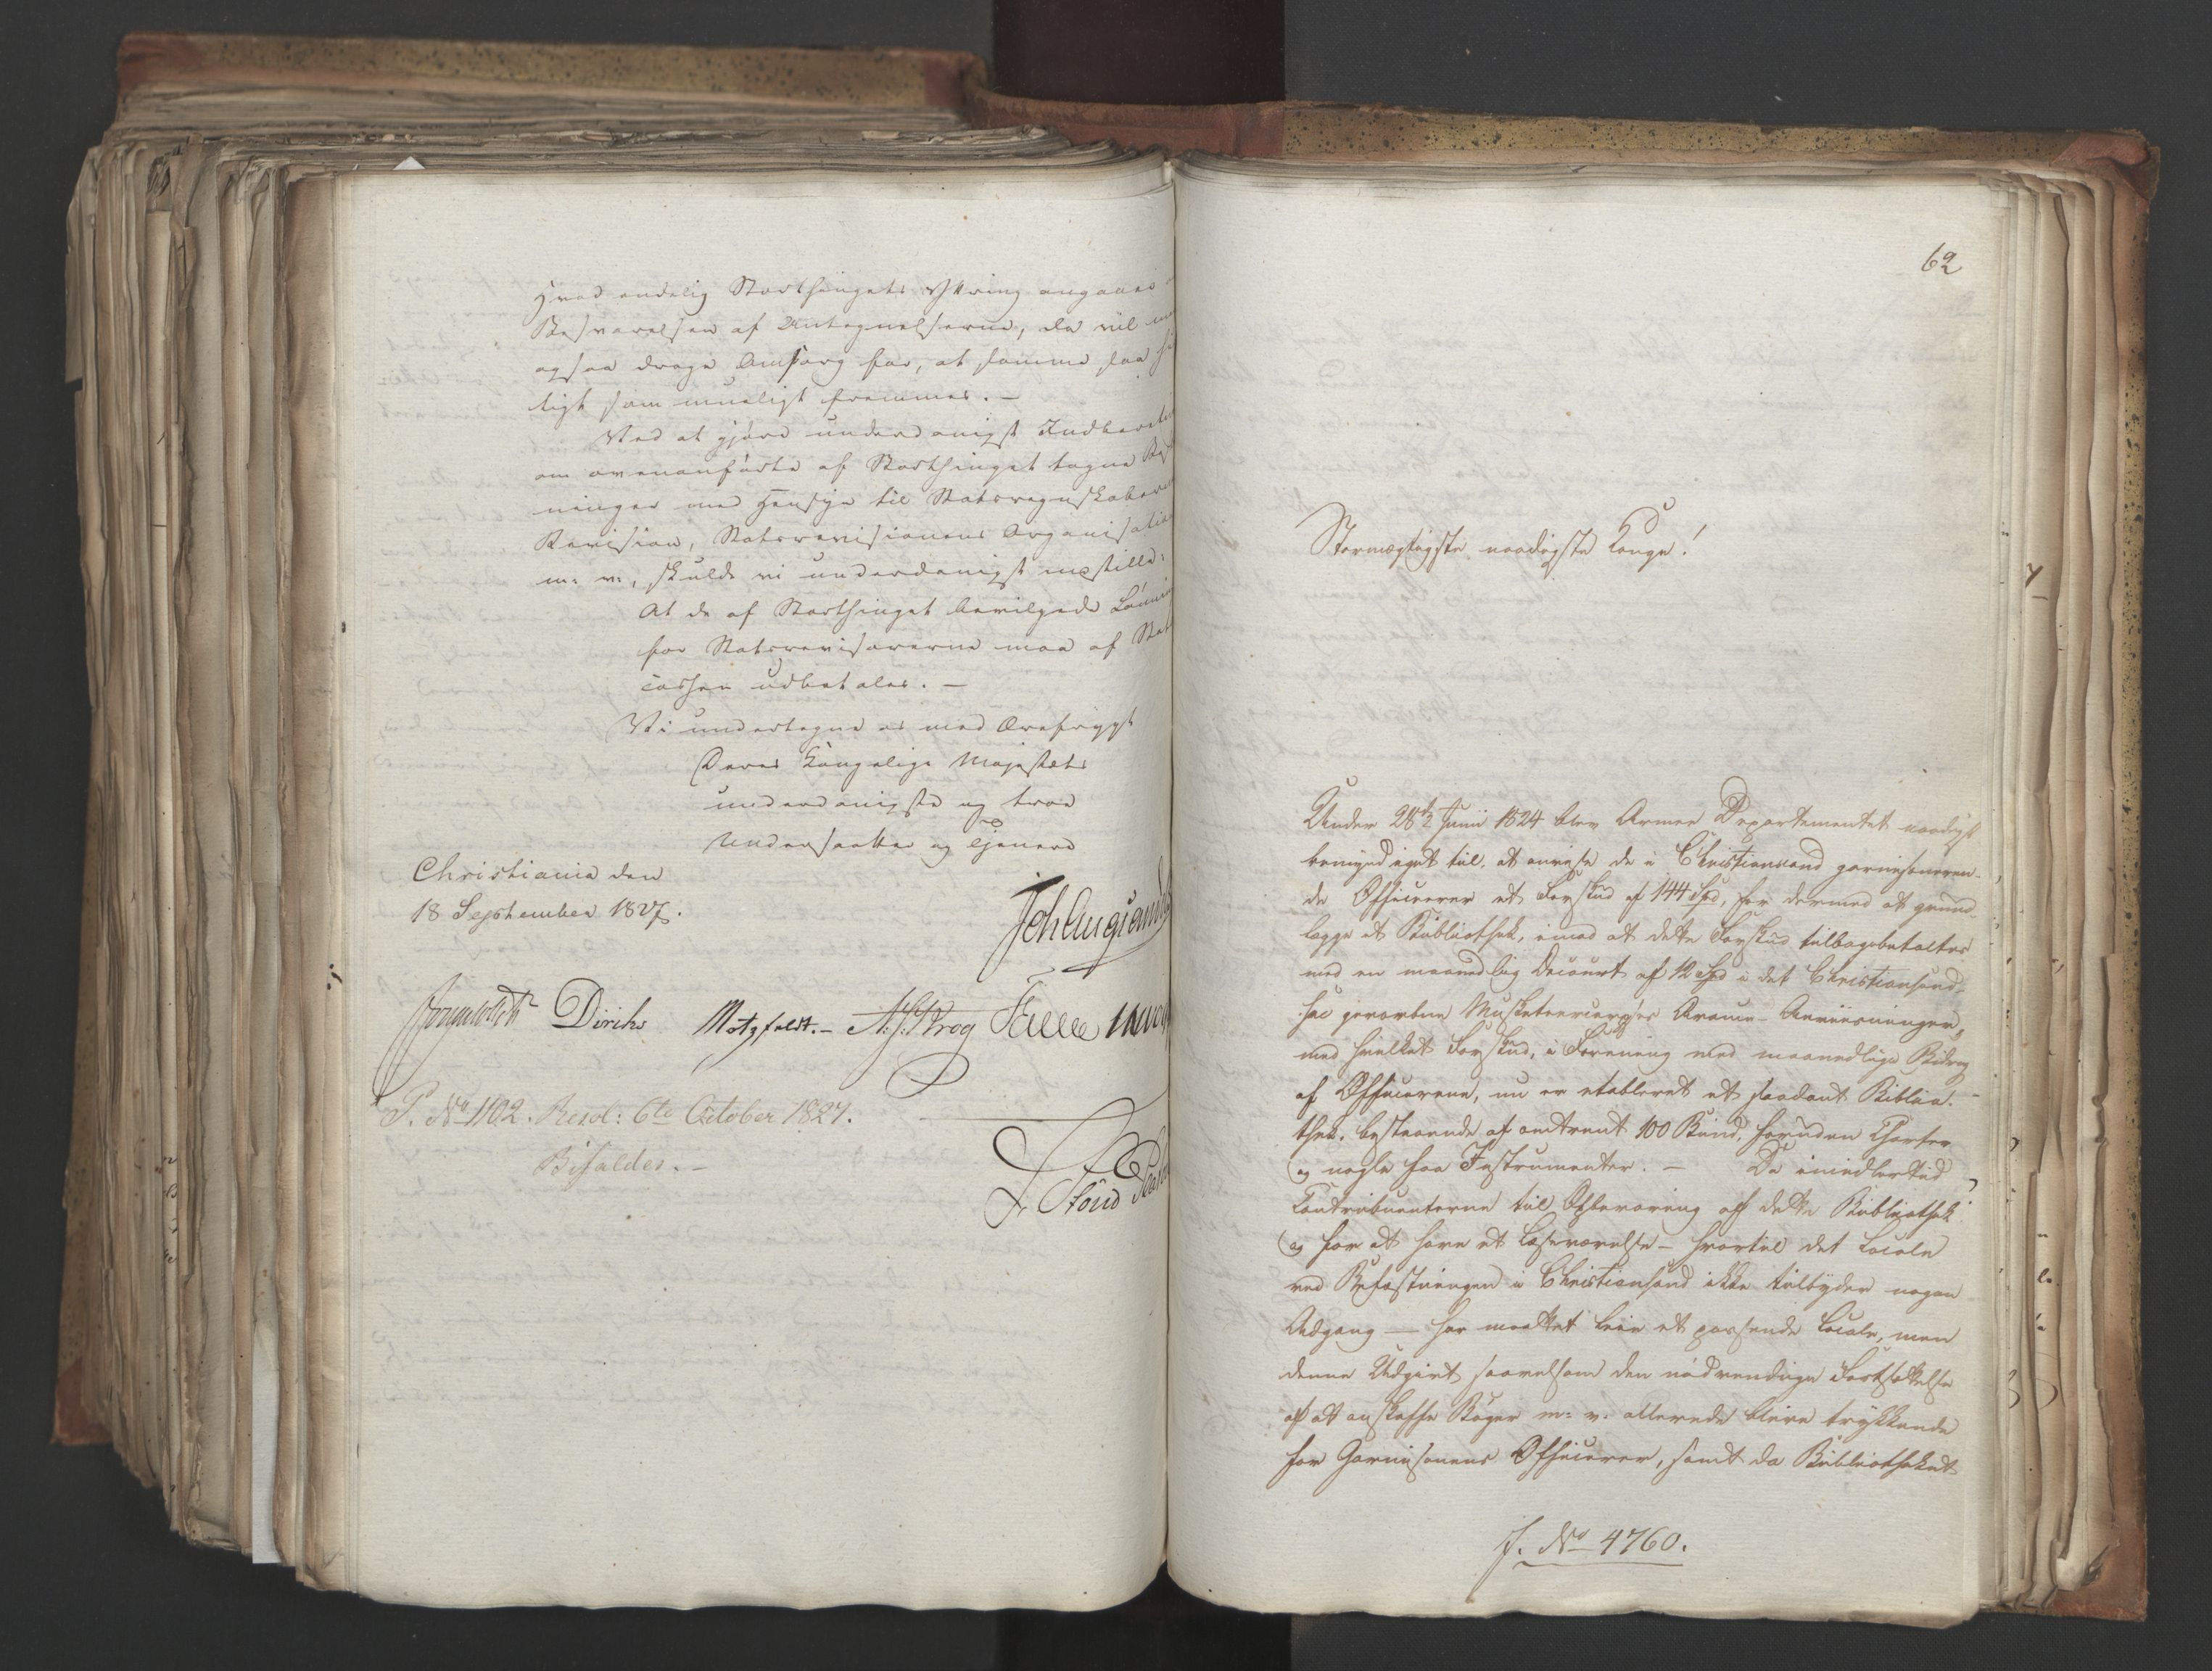 Hvad endelig Storthingets Yttring angaaer
Besvarelsen af Antegnelserne, da vil
ogsaa drage Omsorg for, at samme saa
tigt som mueligt fremmes. —
Ved at gjøre underdanigst Indberet
om ovenanførte af Storthinget tagne Be
ninger med Hensyn til Statsregnskaberne
Revision, Statsrevisionens Organisation
m: v:, skulde vi underdanigst indstille:
At de af Storthinget bevilgede Lønnin
for Statsrevisorerne maa af Stats
Cassen udbetales. —
Vi undertegne os med Ærefrygt
Deres Kongelige Majestæts
underdanigste og troe
Undersaatter og Tjenere
Christiania den
18 September 1827.
Joh Aug Sandels
Diriks Motzfeldt. — N. J. Krog Fasting
P. No 1102. Resol: 6te October 1827.
Bifaldes. —
62
Stormægtigste naadigste Konge!
Under 28de Junii 1824 blev Armee Departementet naadigst
bemyndiget til at anvise de i Christiansand garnisoneren-
de Officerer et Forskud af 144 Spd, for dermed at grund-
lægge et Bibliothek, imod at dette Forskud tilbagebetaltes
med en maanedlig Decourt af 12 Spd i det Christiansand-
ske gevorbne Musketeercorps's Arme- Anviisninger,
med hvilket Forskud, i Forening med maanedlige Bidrag
af Officererne, nu er etableret et saadant Biblio-
thek, bestaaende af omtrent 100 Bind, foruden Charter
og nogle faa Instrumenter. — Da imidlertid
Contribuenterne til Opbevaring af dette Bibliothek
og for at have et Læseværelse — hvortil det Locale
ved Befæstningen i Christiansand ikke tilbyder nogen
Adgang — har maattet leie et passende Locale, men
denne Udgivt saavelsom den nødvendige Fortsættelse
af at anskaffe Bøger m: v: allerede blive trykkende
for Garnisonens Officerer, samt da Bibliotheket
J. No 4760.